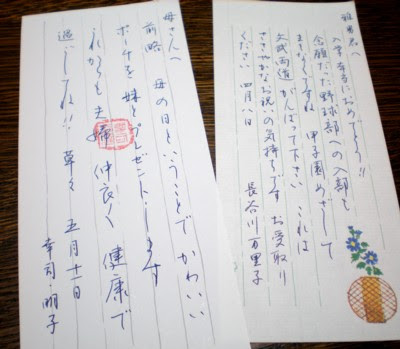 雅男君へ
入学本当におめでとう!!
念願だった野球部への入部も
きまりですね 甲子園めざして
文武両道がんばって下さい これは
ささやかなお祝いの気持ちです お受取り
ください 四月八日 長谷川万里子
母さんへ
前略 母の日ということで かわいい
ポーチを妹とプレゼントします
これからも夫婦仲良く健康で
過ごしてね!! 草々 五月十一日
幸司・朋子